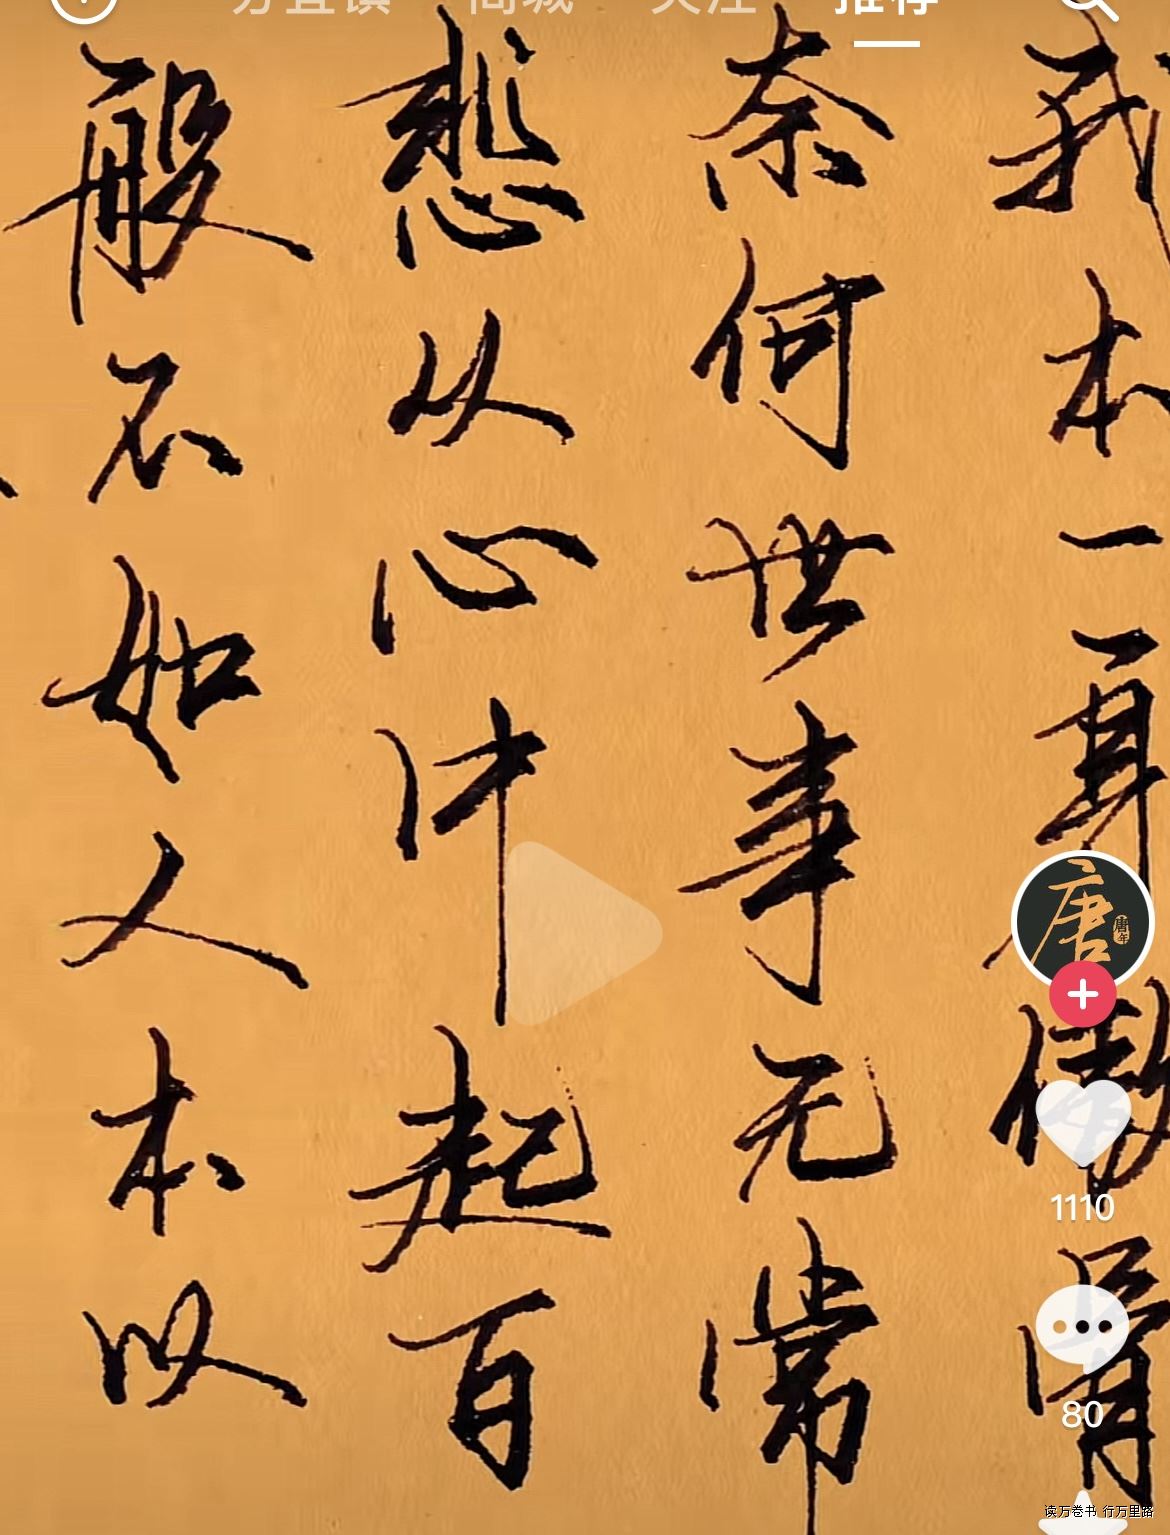 商城 关注 推荐
我本一身傲骨
奈何世事无常
悲从心中起百
般不如人本以
唐
1110
80
读万卷书 行万里路